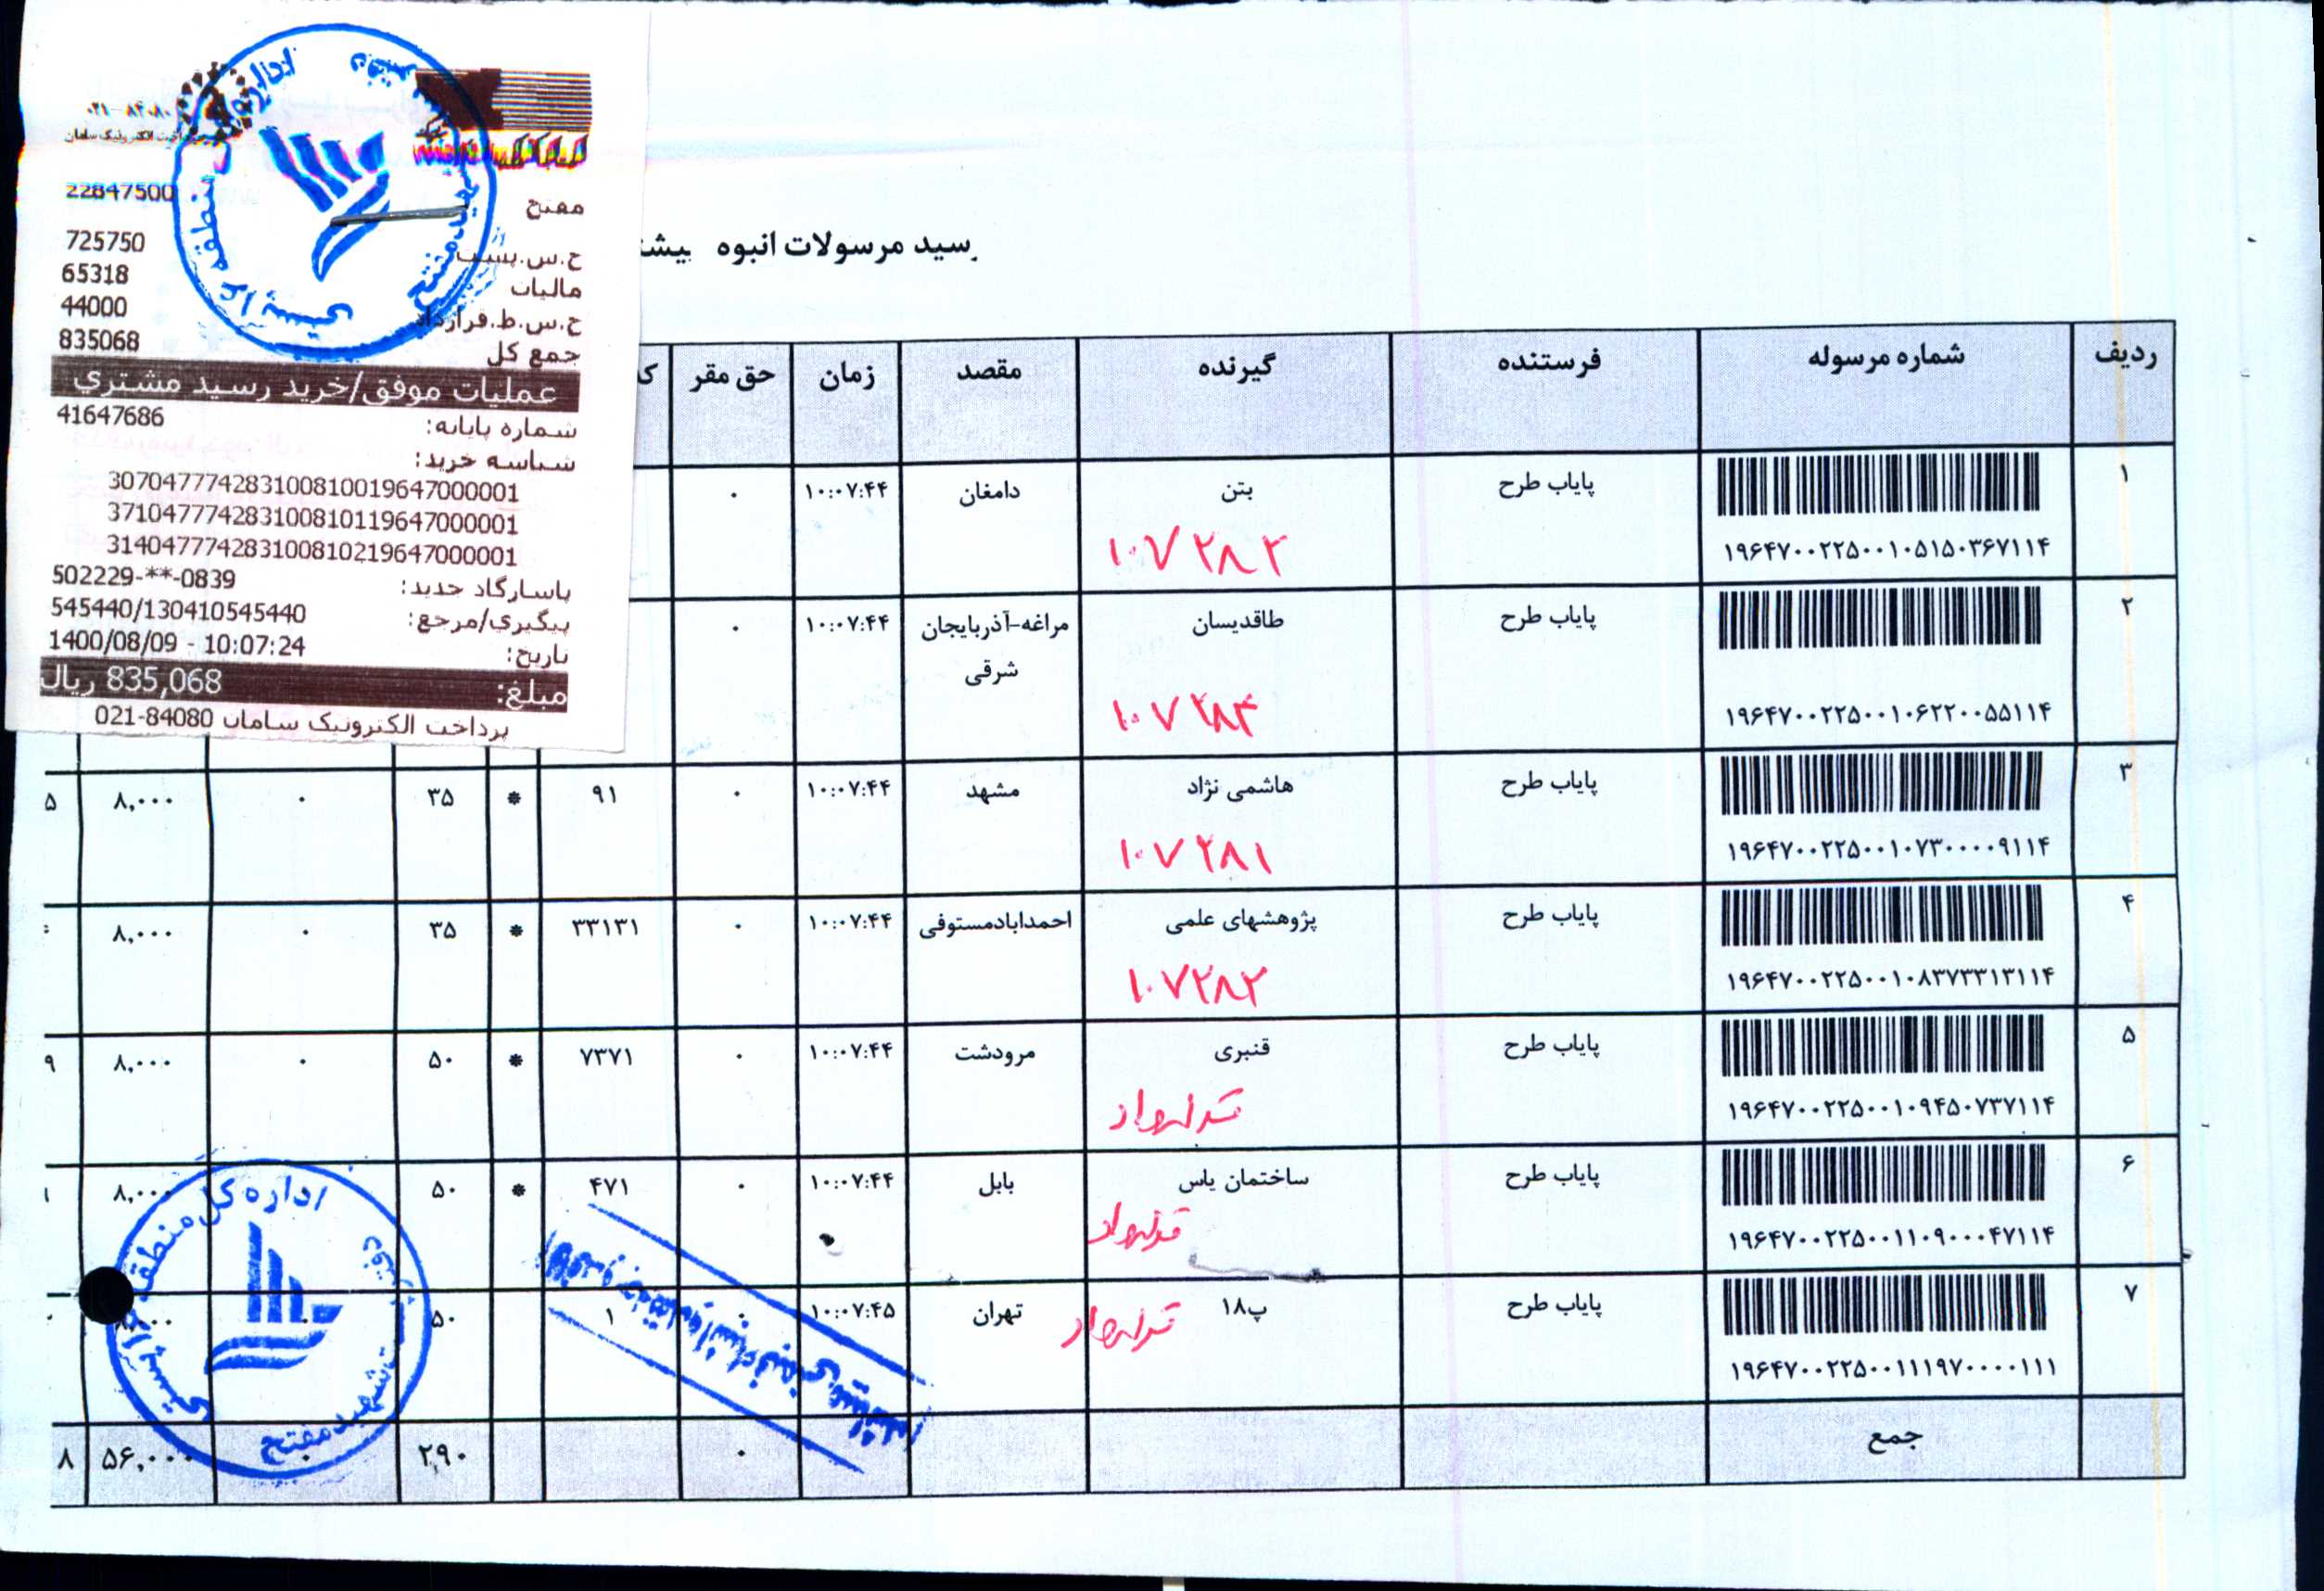 ۰۲۱-۸۴۰۸۰
پرداخت الکترونیک سامان
22847500
مفتح
ح.س.پست 725750
مالیات 65318
ح.س.ط.قرارداد 44000
جمع کل 835068
عملیات موفق/خرید رسید مشتري
شماره پایانه: 41647686
شناسه خرید:
307047774283100810019647000001
371047774283100810119647000001
314047774283100810219647000001
پاسارگاد جدید: 502229-**-0839
پیگیري/مرجع: 545440/130410545440
تاریخ: 1400/08/09 - 10:07:24
مبلغ: 835,068 ریال
پرداخت الکترونیک سامان 021-84080
رسید مرسولات انبوه پیشت
ردیف شماره مرسوله فرستنده گیرنده مقصد زمان حق مقر
۱ پایاب طرح بتن دامغان ۱۰:۰۷:۴۴ ۰
۱۹۶۴۷۰۰۲۲۵۰۰۱۰۵۱۵۰۳۶۷۱۱۴
۲ پایاب طرح طاقدیسان مراغه-آذربایجان شرقی ۱۰:۰۷:۴۴ ۰
۱۰۷۲۸۴
۱۹۶۴۷۰۰۲۲۵۰۰۱۰۶۲۲۰۰۵۵۱۱۴
۳ پایاب طرح هاشمی نژاد مشهد ۱۰:۰۷:۴۴ ۰ ۹۱ * ۳۵ ۰ ۸,۰۰۰ ۵
۱۰۷۲۸۱
۱۹۶۴۷۰۰۲۲۵۰۰۱۰۷۳۰۰۰۰۹۱۱۴
۴ پایاب طرح پژوهشهای علمی احمدابادمستوفی ۱۰:۰۷:۴۴ ۰ ۳۳۱۳۱ * ۳۵ ۰ ۸,۰۰۰
۱۹۶۴۷۰۰۲۲۵۰۰۱۰۸۳۷۳۳۱۳۱۱۴
۵ پایاب طرح قنبری مرودشت ۱۰:۰۷:۴۴ ۰ ۷۳۷۱ * ۵۰ ۰ ۸,۰۰۰ ۹
۱۹۶۴۷۰۰۲۲۵۰۰۱۰۹۴۵۰۷۳۷۱۱۴
۶ پایاب طرح ساختمان یاس بابل ۱۰:۰۷:۴۴ ۰ ۴۷۱ * ۵۰ ۸,۰۰۰ ۱
۱۹۶۴۷۰۰۲۲۵۰۰۱۱۰۹۰۰۰۴۷۱۱۴
۷ پایاب طرح پ۱۸ تهران ۱۰:۰۷:۴۵ ۰ ۱ ۵۰ ۰
۱۹۶۴۷۰۰۲۲۵۰۰۱۱۱۹۷۰۰۰۰۱۱۱
جمع ۰ ۲۹۰ ۰ ۵۶,۰۰۰ ۸
اداره کل منطقه
شهید مفتح